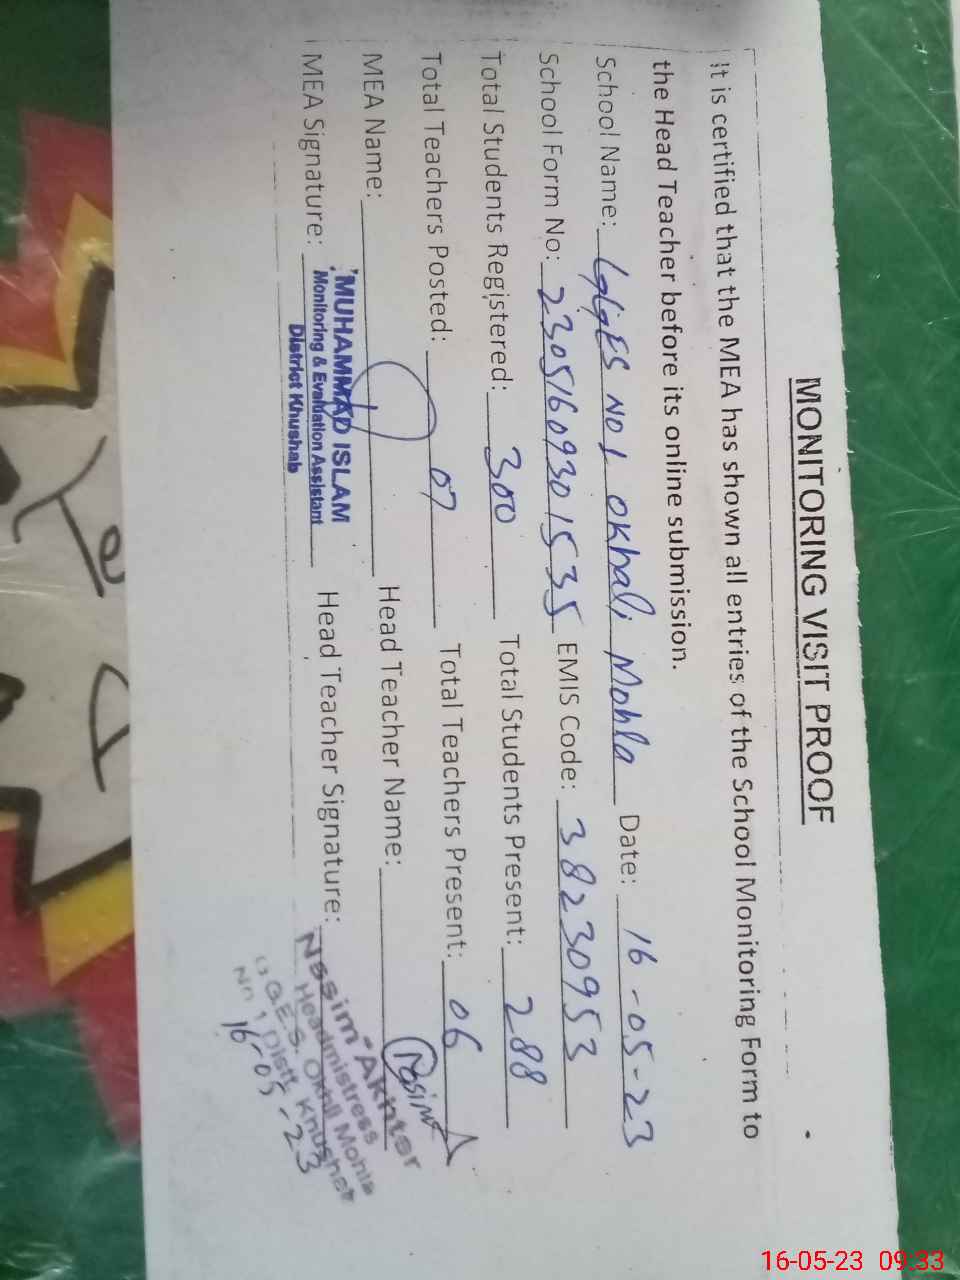 MONITORING VISIT PROOF
It is certified that the MEA has shown all entries of the School Monitoring Form to
the Head Teacher before its online submission.
School Name: GGES NO 1 Okhali Mohla Date: 16-05-23
School Form No: 23051609301535 EMIS Code: 38230953
Total Students Registered: 300 Total Students Present: 288
Total Teachers Posted: 07 Total Teachers Present: 06
MEA Name: Head Teacher Name:
MEA Signature: Head Teacher Signature:
MUHAMMAD ISLAM
Monitoring & Evaluation Assistant
District Khushab
Nasim A
Nssim Akhter
Headmistress
G.G.E.S. Okhli Mohla
No 1 Distt. Khushab
16-05-23
16-05-23 09.33